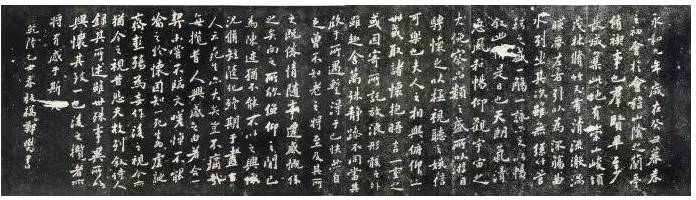 永和九年歲在癸丑暮春
之初會于會稽山陰之蘭亭
脩禊事也群賢畢至少
長咸集此地有崇山峻領
茂林脩竹又有清流激湍
暎帶左右引以為流觴曲
水列坐其次雖無絲竹管
絃之盛一觴一詠亦足以暢
敘幽情是日也天朗氣清
惠風和暢仰觀宇宙之
大俯察品類之盛所以遊目
騁懷足以極視聽之娛信
可樂也夫人之相與俯仰一
世或取諸懷抱晤言一室之內
或因寄所託放浪形骸之外
雖趣舍萬殊靜躁不同當其
欣于所遇暫得于己快然自
足曾不知老之將至及其所
之既倦情隨事遷感慨係
之矣向之所欣俛仰之間已
為陳迹猶不能不以之興懷
況脩短隨化終期于盡古
人云死生亦大矣豈不痛哉
每攬昔人興感之由若合一
契未嘗不臨文嗟悼不能
喻之於懷固知一死生為虛誕
齊彭殤為妄作後之視今亦
猶今之視昔悲夫故列敘時人
錄其所述雖世殊事異所以
興懷其致一也後之攬者亦
將有感于斯
乾隆春板橋鄭燮書